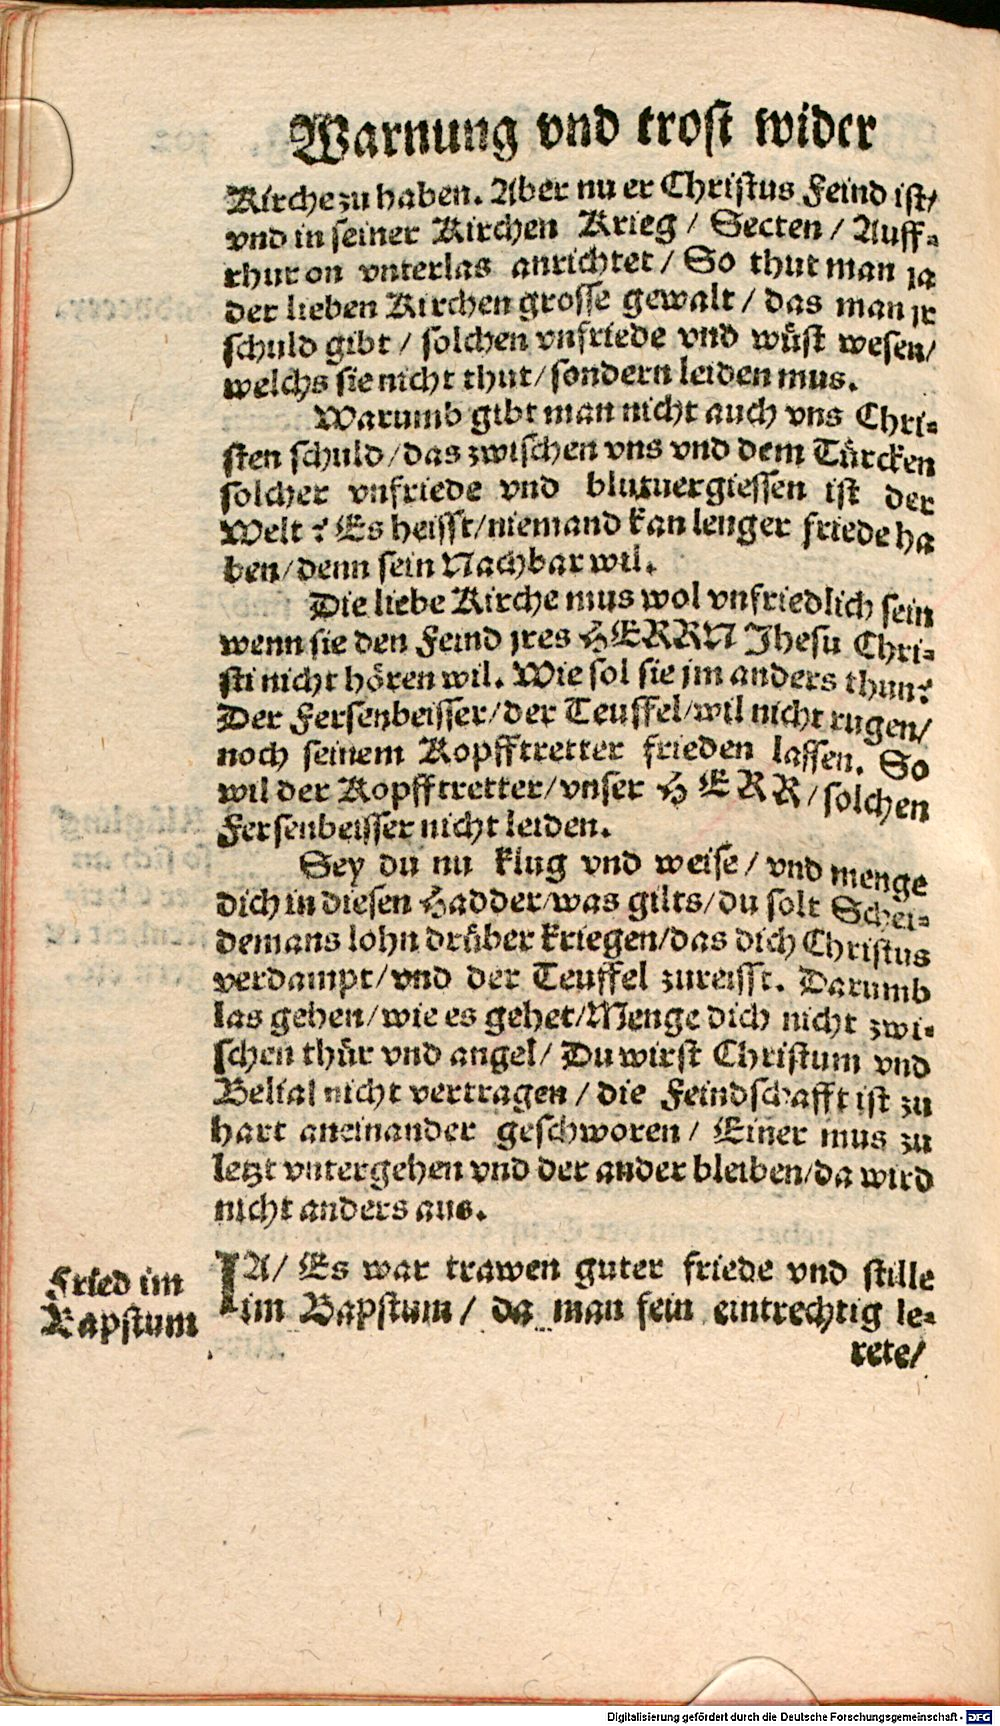 Warnung vnd trost wider
Kirche zu haben. Aber nu er Christus Feind ist/
vnd in seiner Kirchen Krieg / Secten / Auff-
rhur on vnterlas anrichtet / So thut man ja
der lieben Kirchen grosse gewalt / das man jr
schuld gibt / solchen vnfriede vnd wüst wesen/
welchs sie nicht thut/ sondern leiden mus.
Warumb gibt man nicht auch vns Chri-
sten schuld/das zwischen vns vnd dem Türcken
solcher vnfriede vnd blutuergiessen ist der
Welt? Es heisst/niemand kan lenger friede ha
ben/denn sein Nachbar wil.
Die liebe Kirche mus wol vnfriedlich sein
wenn sie den Feind jres HERRN Jhesu Chri-
sti nicht hören wil. Wie sol sie jm anders thun?
Der Fersenbeisser/der Teuffel/wil nicht rugen/
noch seinem Kopfftretter frieden lassen. So
wil der Kopfftretter/vnser HERR/solchen
Fersenbeisser nicht leiden.
Sey du nu klug vnd weise/ vnd menge
dich in diesen Hadder/was gilts/du solt Schei-
demans lohn drüber kriegen/das dich Christus
verdampt/vnd der Teuffel zureisst. Darumb
las gehen/wie es gehet/Menge dich nicht zwi-
schen thür vnd angel/ Du wirst Christum vnd
Belial nicht vertragen / die Feindschafft ist zu
hart aneinander geschworen/ Einer mus zu
letzt vntergehen vnd der ander bleiben/da wird
nicht anders aus.
Fried im
Bapstum
JA/ Es war trawen guter friede vnd stille
im Bapstum/ da man fein eintrechtig le-
rete/
Digitalisierung gefördert durch die Deutsche Forschungsgemeinschaft - DFG